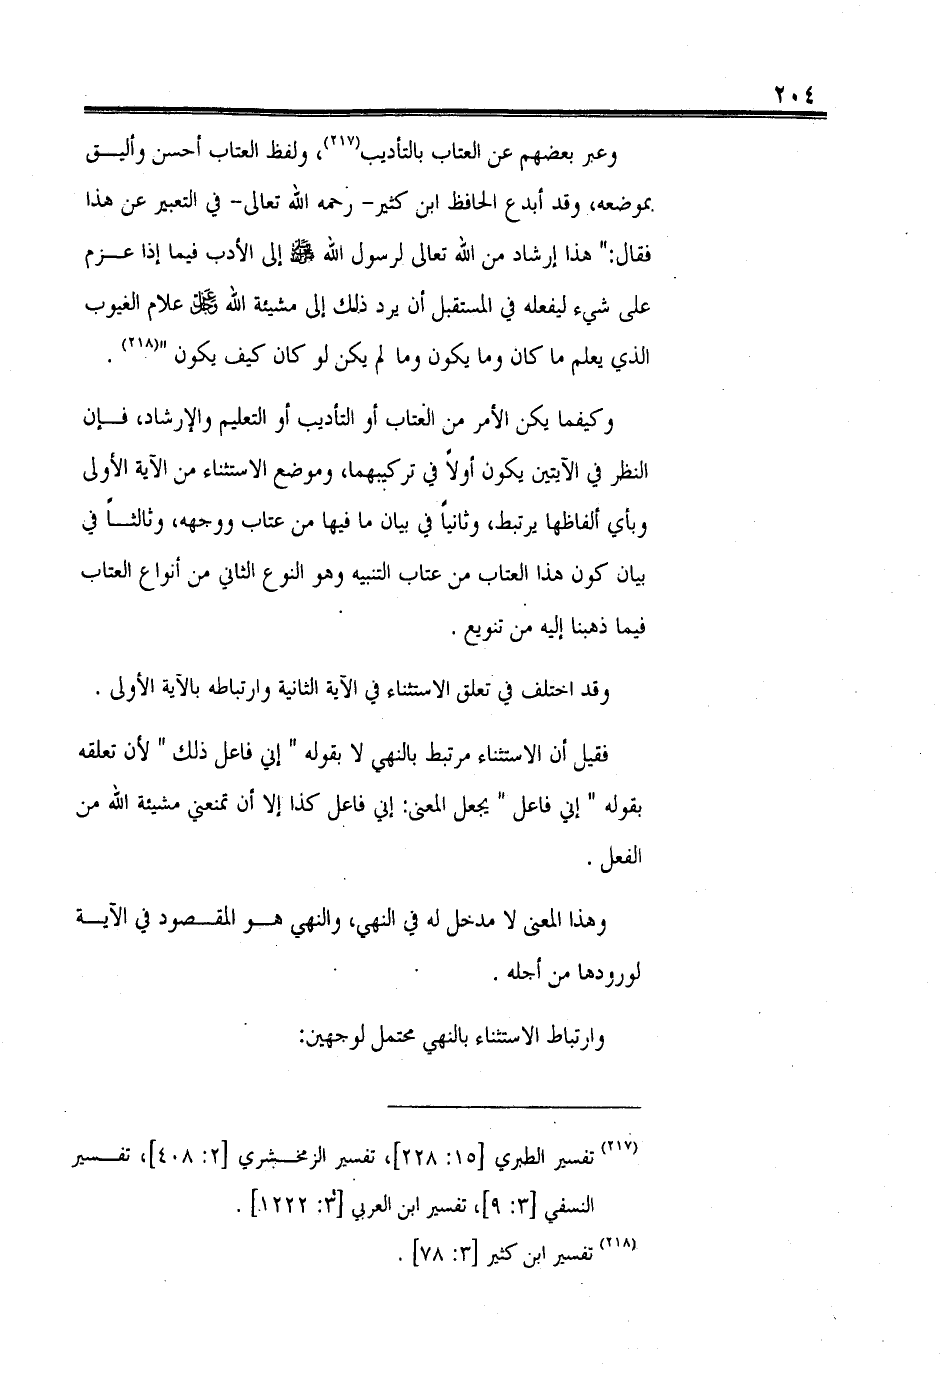 ٢٠٤
وعبر بعضهم عن العتاب بالتأديب(٢١٧)، ولفظ العتاب أحسن وأليـــق
بموضعه، وقد أبدع الحافظ ابن كثير- رحمه الله تعالى- في التعبير عن هذا
فقال:" هذا إرشاد من الله تعالى لرسول الله ﷺ إلى الأدب فيما إذا عـــزم
على شيء ليفعله في المستقبل أن يرد ذلك إلى مشيئة الله ﷻ علام الغيوب
الذي يعلم ما كان وما يكون وما لم يكن لو كان كيف يكون "(٢١٨) .
وكيفما يكن الأمر من العتاب أو التأديب أو التعليم والإرشاد، فـــإن
النظر في الآيتين يكون أولاً في تركيبهما، وموضع الاستثناء من الآية الأولى
وبأي ألفاظها يرتبط، وثانياً في بيان ما فيها من عتاب ووجهه، وثالثـــاً في
بيان كون هذا العتاب من عتاب التنبيه وهو النوع الثاني من أنواع العتاب
فيما ذهبنا إليه من تنويع .
وقد اختلف في تعلق الاستثناء في الآية الثانية وارتباطه بالآية الأولى .
فقيل أن الاستثناء مرتبط بالنهي لا بقوله " إني فاعل ذلك " لأن تعلقه
بقوله " إني فاعل " يجعل المعنى: إني فاعل كذا إلا أن تمنعني مشيئة الله من
الفعل .
وهذا المعنى لا مدخل له في النهي، والنهي هـــو المقـــصود في الآيـــة
لورودها من أجله .
وارتباط الاستثناء بالنهي محتمل لوجهين:
(٢١٧) تفسير الطبري [١٥: ٢٢٨]، تفسير الزمخـــشري [٢: ٤٠٨]، تفـــسير
النسفي [٣: ٩]، تفسير ابن العربي [٣: ١٢٢٢] .
(٢١٨) تفسير ابن كثير [٣: ٧٨] .